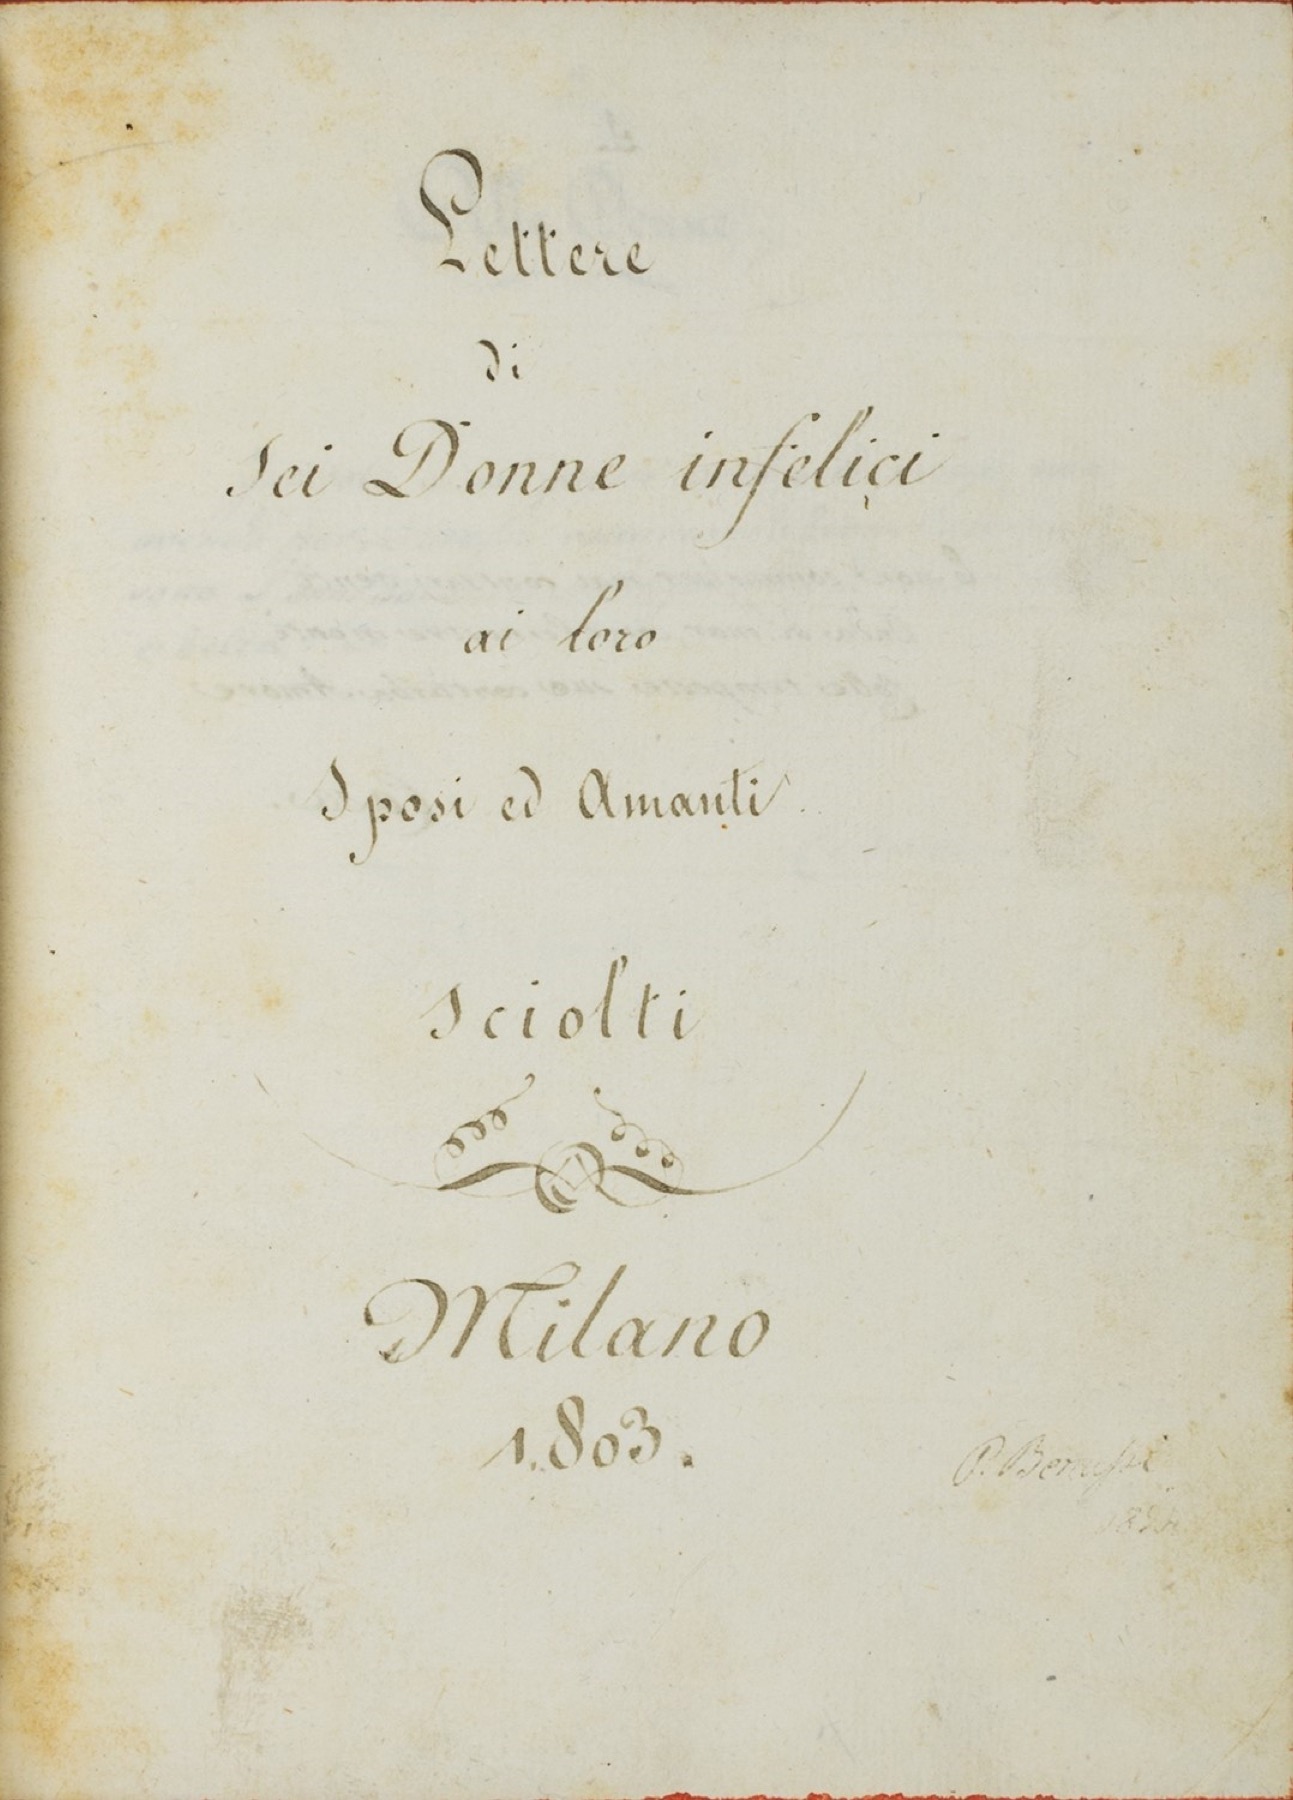 Lettere
di
Sei Donne infelici
ai loro
Sposi ed Amanti
Sciolti
Milano
1.803.
P. Benussi